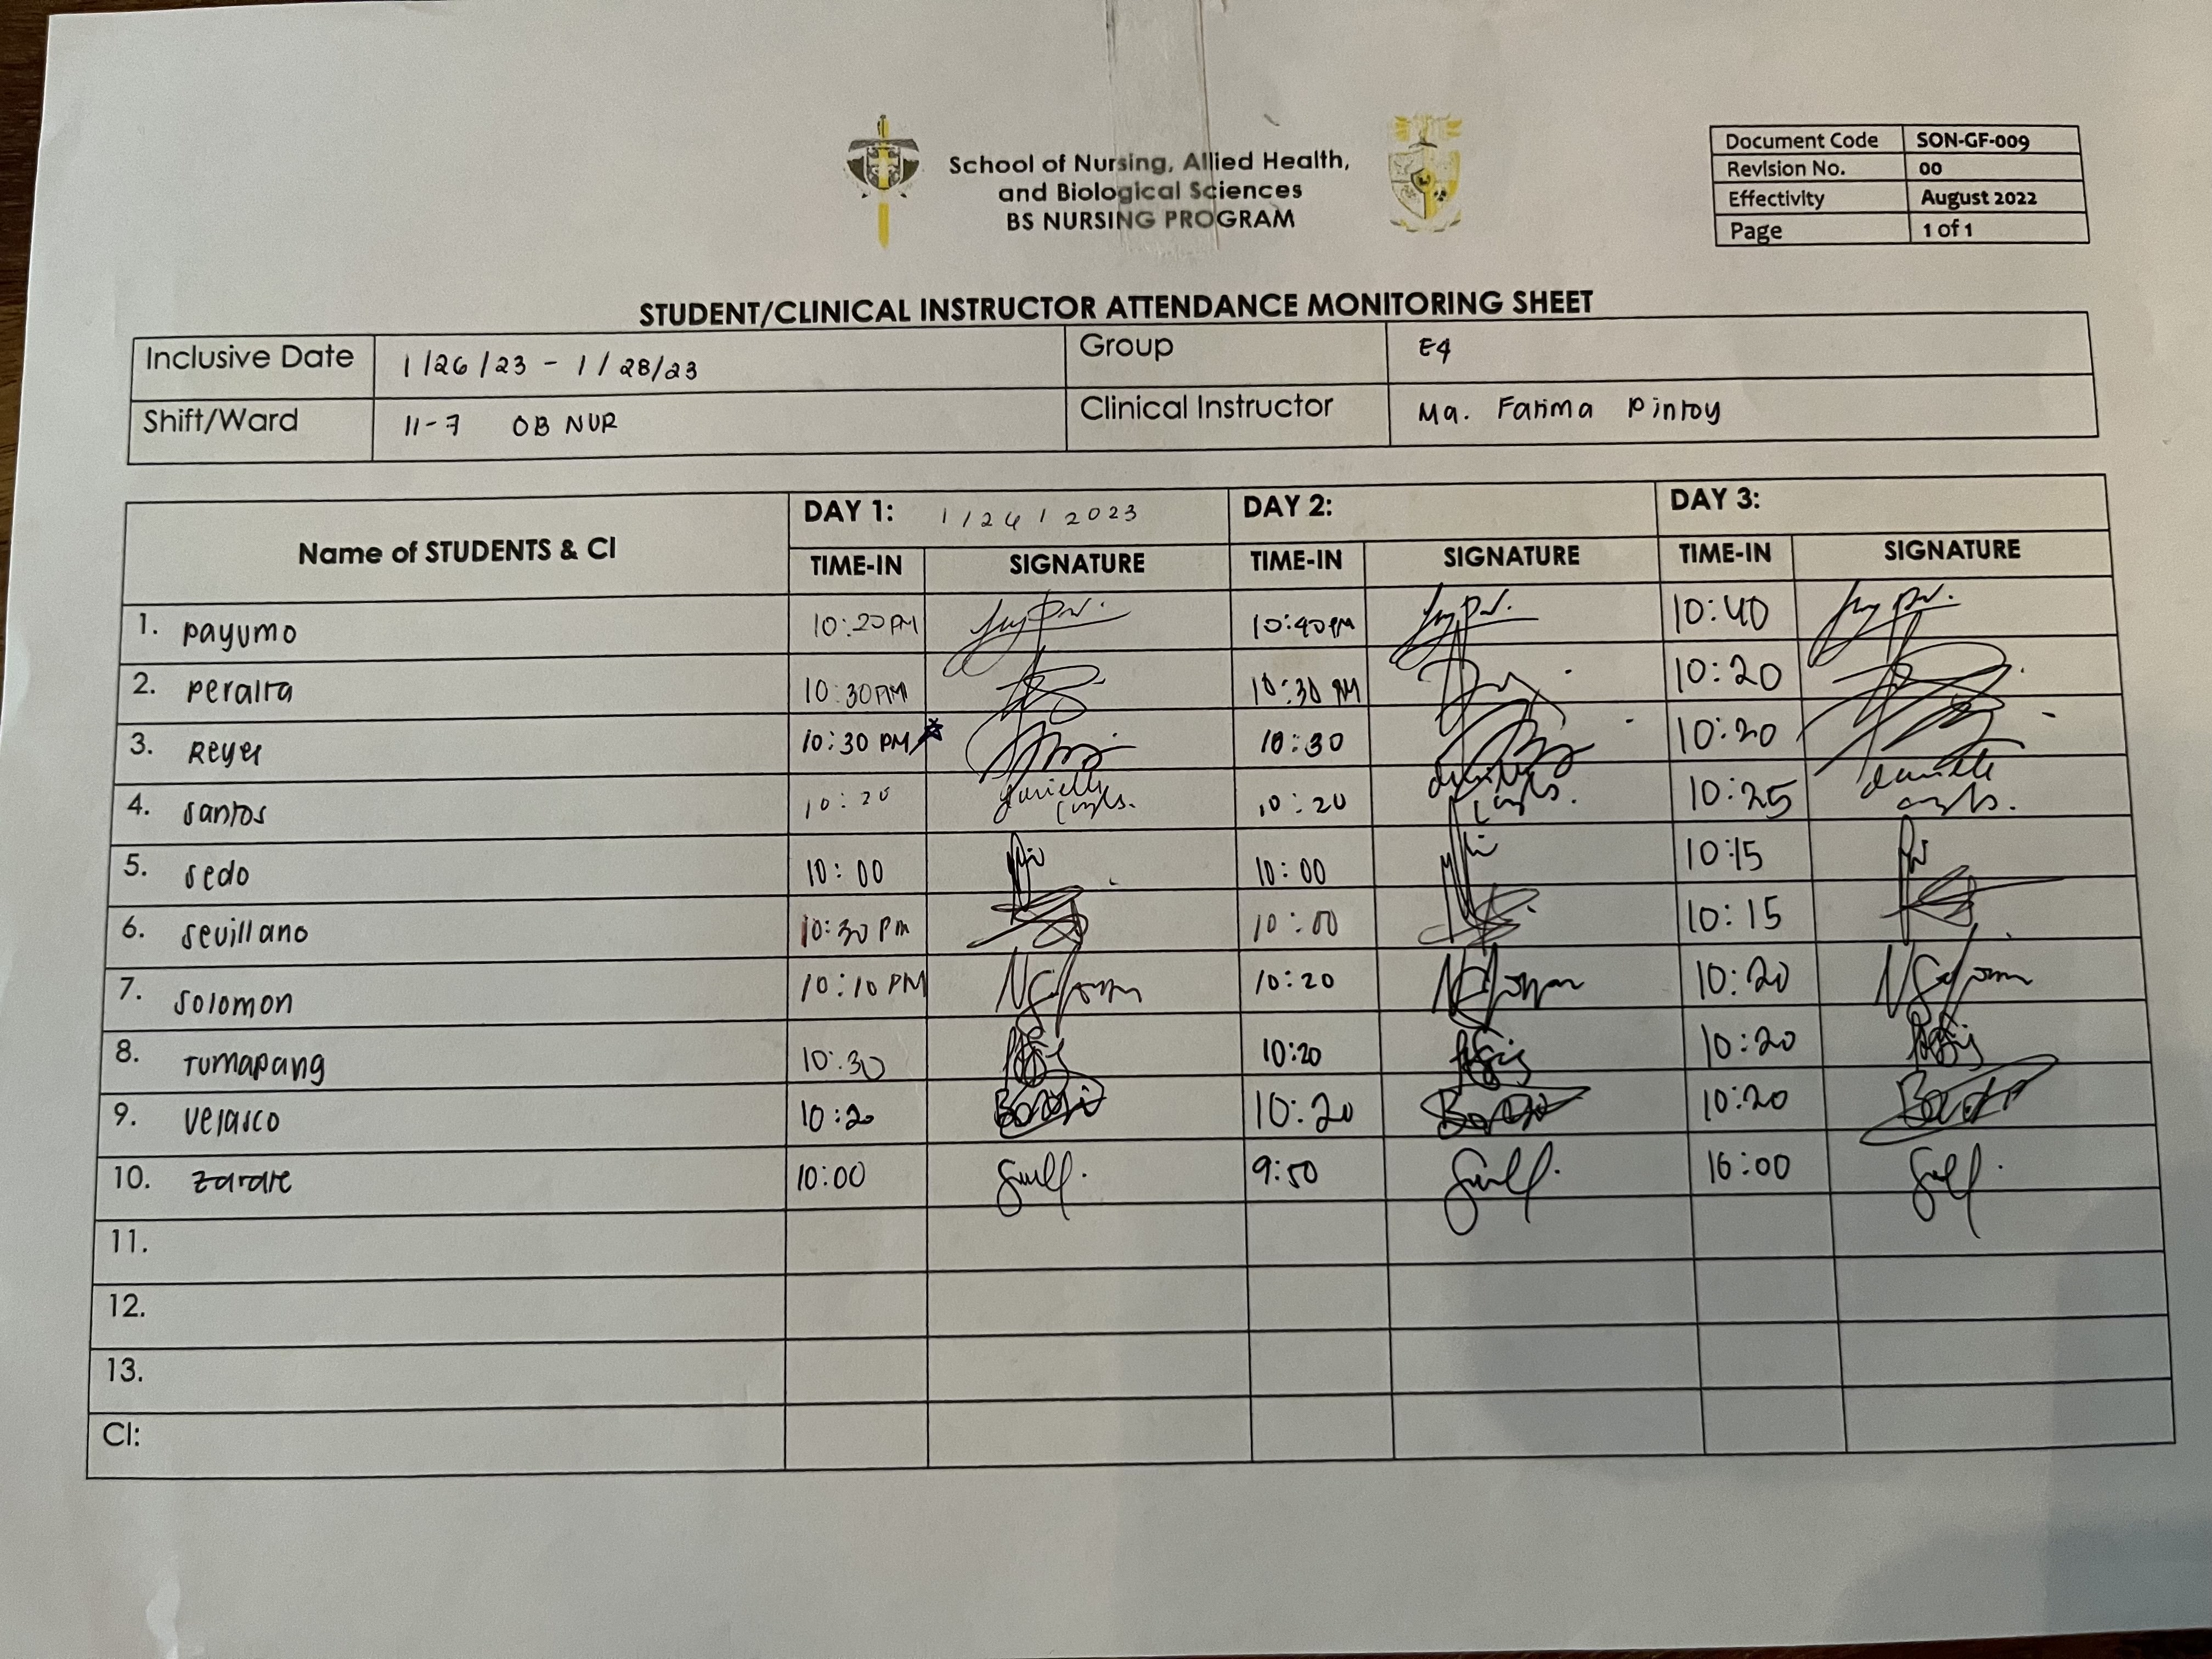 School of Nursing, Allied Health,
and Biological Sciences
BS NURSING PROGRAM
Document Code SON-GF-009
Revision No. 00
Effectivity August 2022
Page 1 of 1
STUDENT/CLINICAL INSTRUCTOR ATTENDANCE MONITORING SHEET
Inclusive Date 1/26/23 - 1/28/23 Group E4
Shift/Ward 11-7 OB NUR Clinical Instructor Ma. Fatima Pintoy
Name of STUDENTS & CI DAY 1: 1/26/2023 DAY 2: DAY 3:
TIME-IN SIGNATURE TIME-IN SIGNATURE TIME-IN SIGNATURE
1. Payumo 10:20 PM 10:40 PM 10:40
2. Peralta 10:30 PM 10:30 PM 10:20
3. Reyes 10:30 PM 10:30 10:20
4. Santos 10:20 10:20 10:25
5. Sedo 10:00 10:00 10:15
6. Sevillano 10:30 PM 10:00 10:15
7. Solomon 10:10 PM 10:20 10:20
8. Tumapang 10:30 10:20 10:20
9. Velasco 10:20 10:20 10:20
10. Zarate 10:00 9:50 10:00
11.
12.
13.
CI: